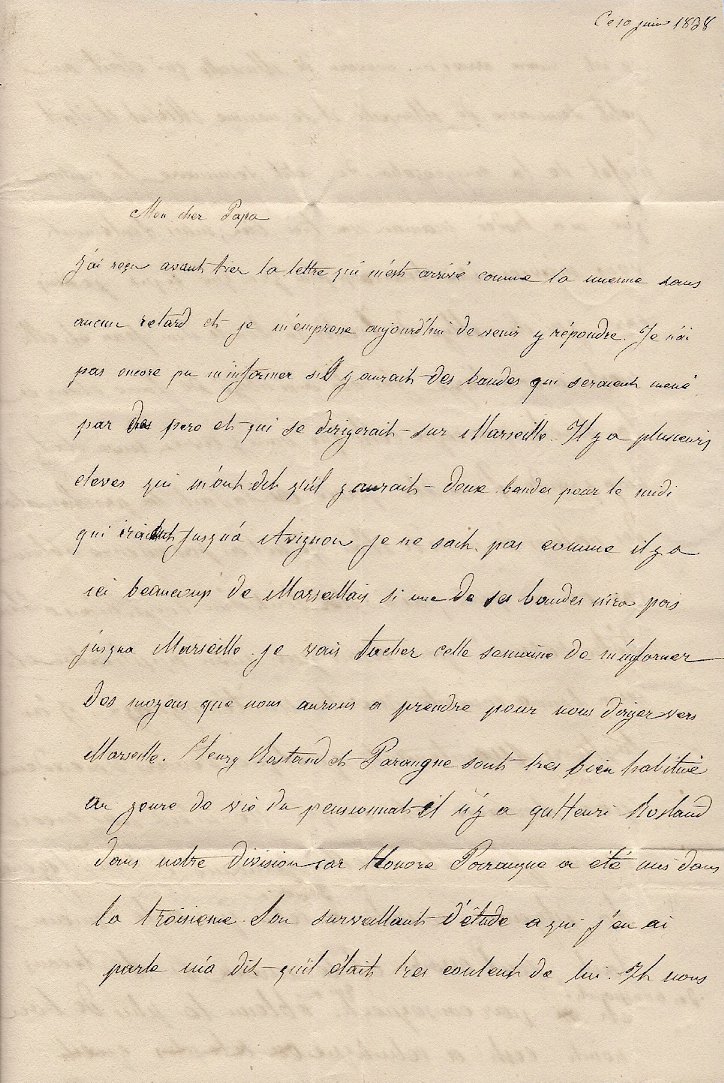 Ce 10 juin 1838
Mon cher Papa
J'ai reçu avant hier la lettre qui m'est arrivé comme la mienne sans
aucun retard et je m'empresse aujourd'hui de venir y répondre. Je n'ai
pas encore pu m'informer s'il y aurait des bandes qui seraient mené
par des pere et qui se dirigerait sur Marseille. Il y a plusieurs
eleves qui m'ont dit qu'il y aurait deux bandes pour le midi
qui iraient jusqu'a Avignon je ne sait pas comme il y a
ici beaucoup de Marseillais si une de ses bandes n'ira pas
jusqua Marseille. je vais tacher cette semaine de m'informer
des moyens que nous aurons a prendre pour nous diriger vers
Marseille. Henry Rostand et Paranque sont tres bien habitué
au genre de vie du pensionnat il n'y a qu'Henri Rostand
dans notre division car Honore Parranque a été mis dans
la troisieme. Son surveillant d'étude a qui j'en ai
parle m'a dit qu'il était tres content de lui. Ils nous